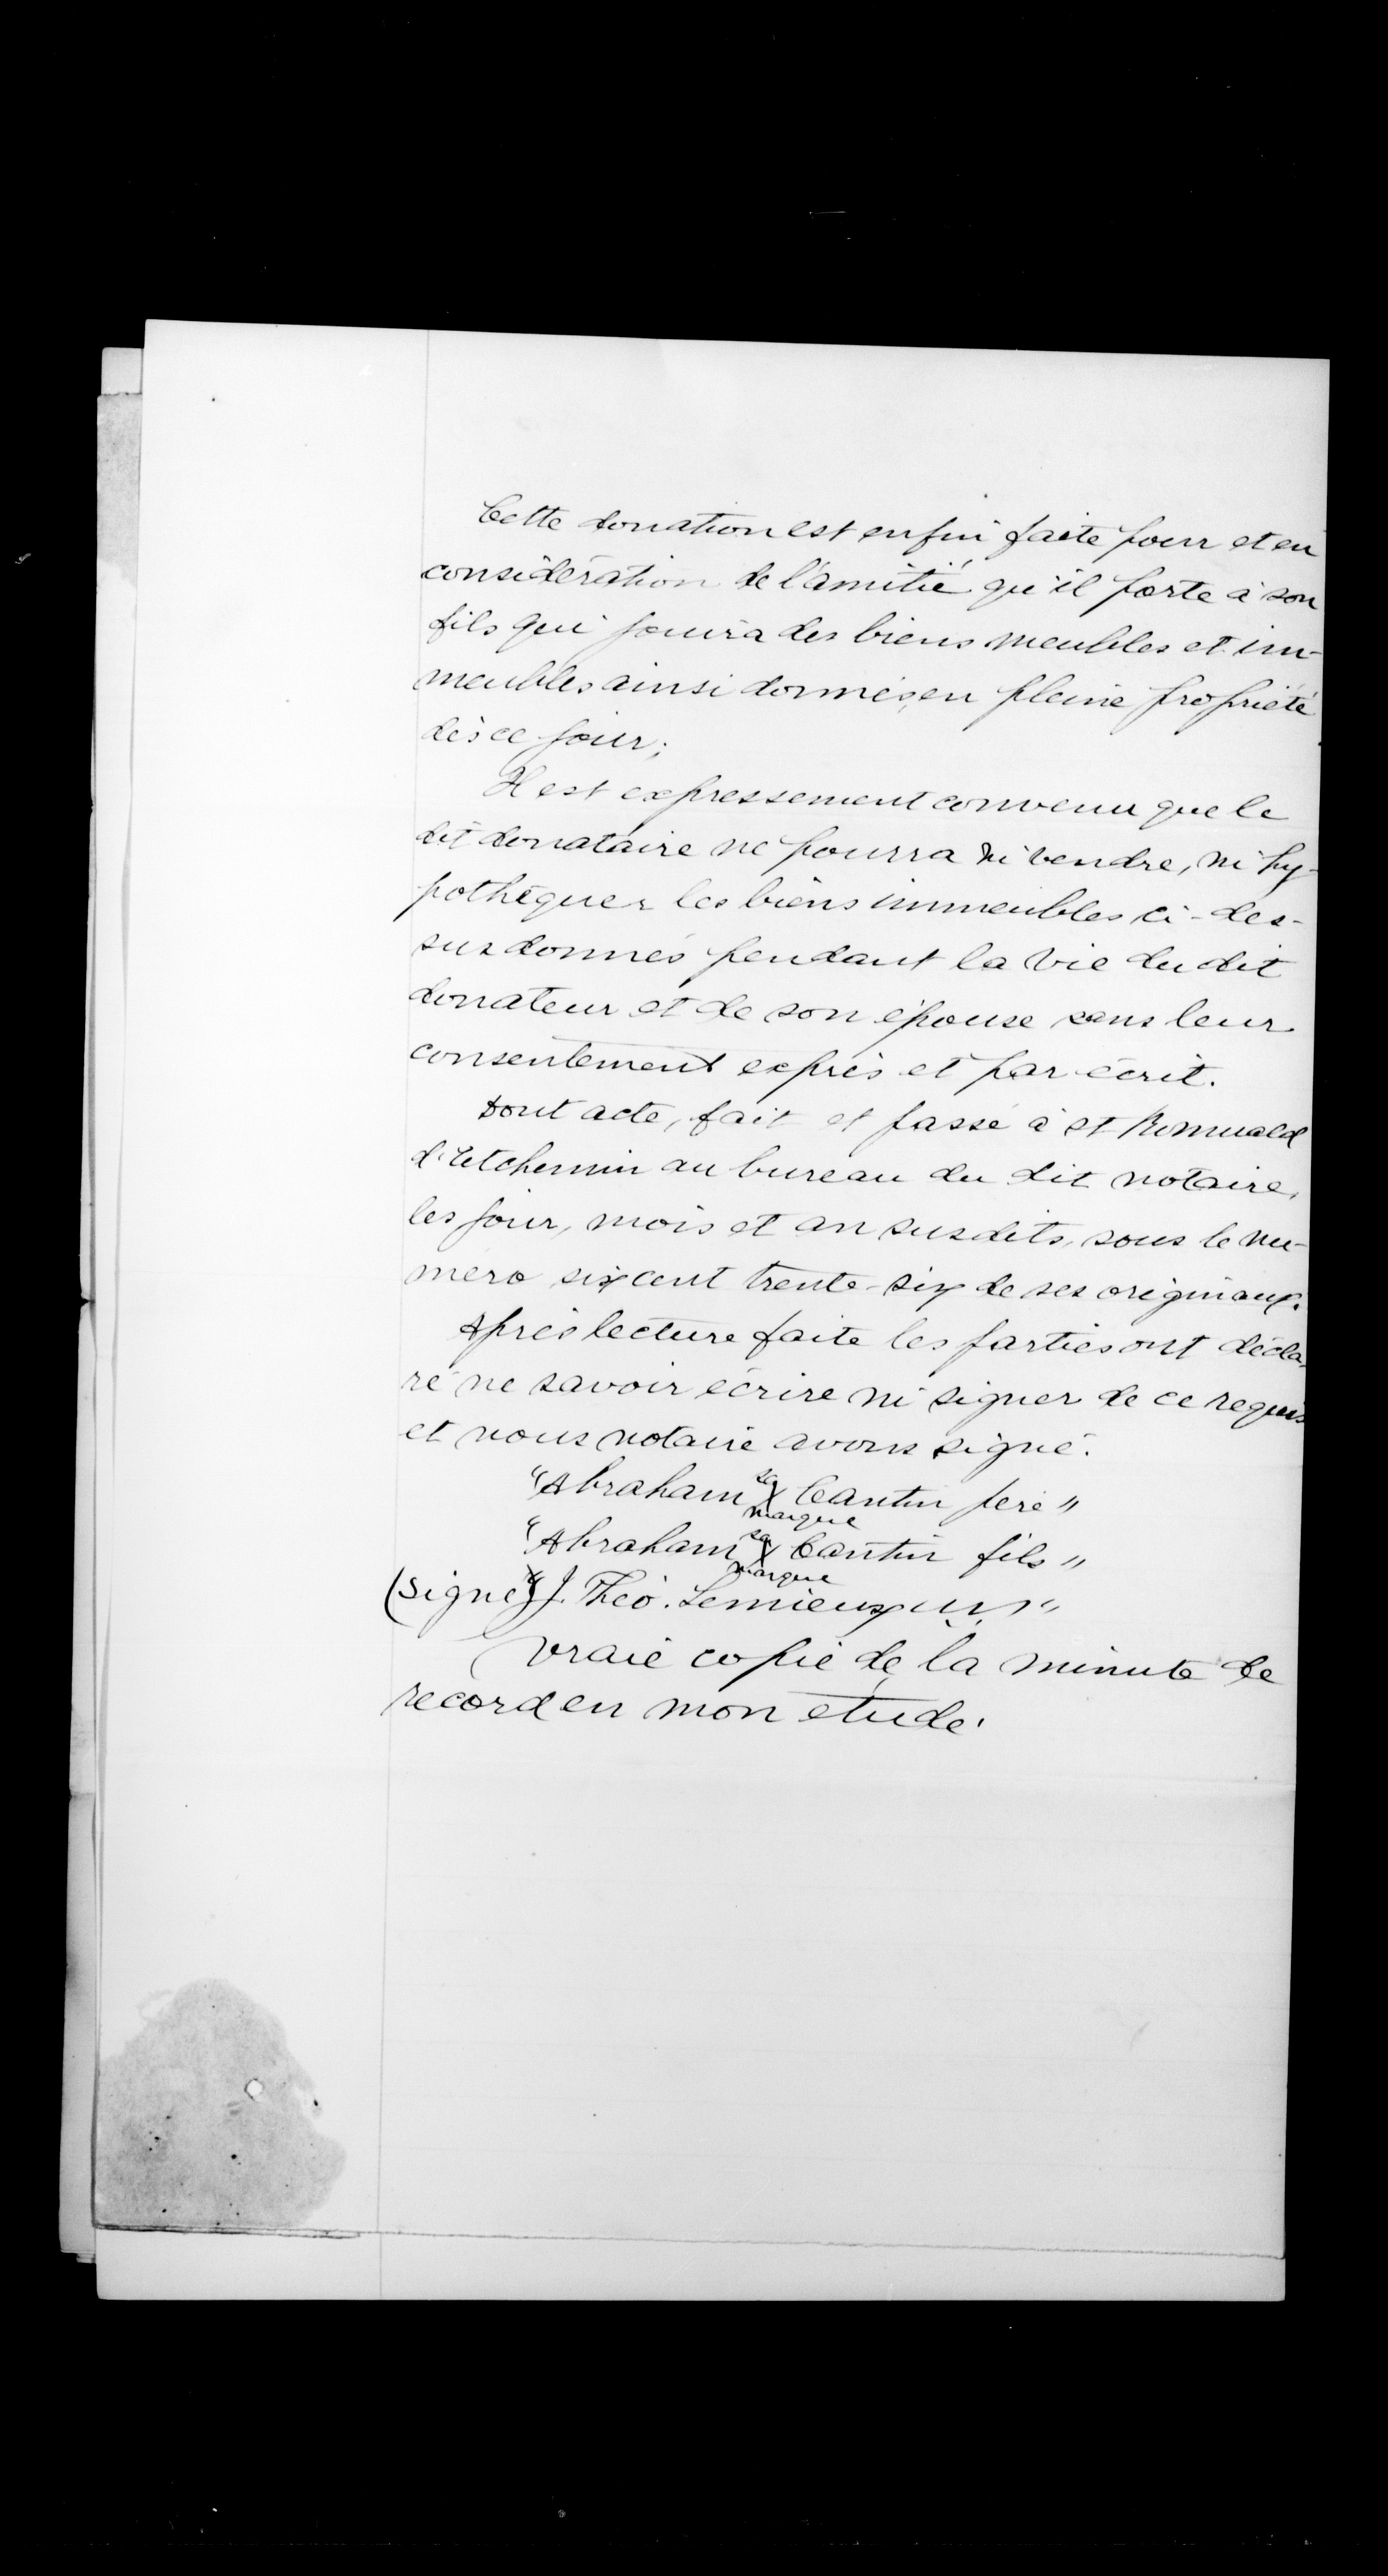 Cette donation est enfin faite pour et en
considération de l'amitié qu'il porte à son
fils qui jouira des biens meubles et im-
meubles ainsi donnés en pleine propriété
dès ce jour;
Il est expressement convenu que le
dit donataire ne pourra ni vendre, ni hy-
pothéquer les biens immeubles ci-des-
sus donnés pendant la vie du dit
donateur et de son épouse sans leur
consentement exprès et par écrit.
Dont acte, fait et passé à St Romuald
d'Etchemin au bureau du dit notaire,
les jour, mois et an susdits, sous le nu-
mero six cent trente-six de ses originaux.
Après lecture faite les parties ont décla-
ré ne savoir écrire ni signer de ce requis
et nous notaire avons signé.
"Abraham sa X marque Cantin père"
"Abraham sa X marque Cantin fils"
(signé) "J. Théo. Lemieux
vraie copie de la minute de
record en mon etude.